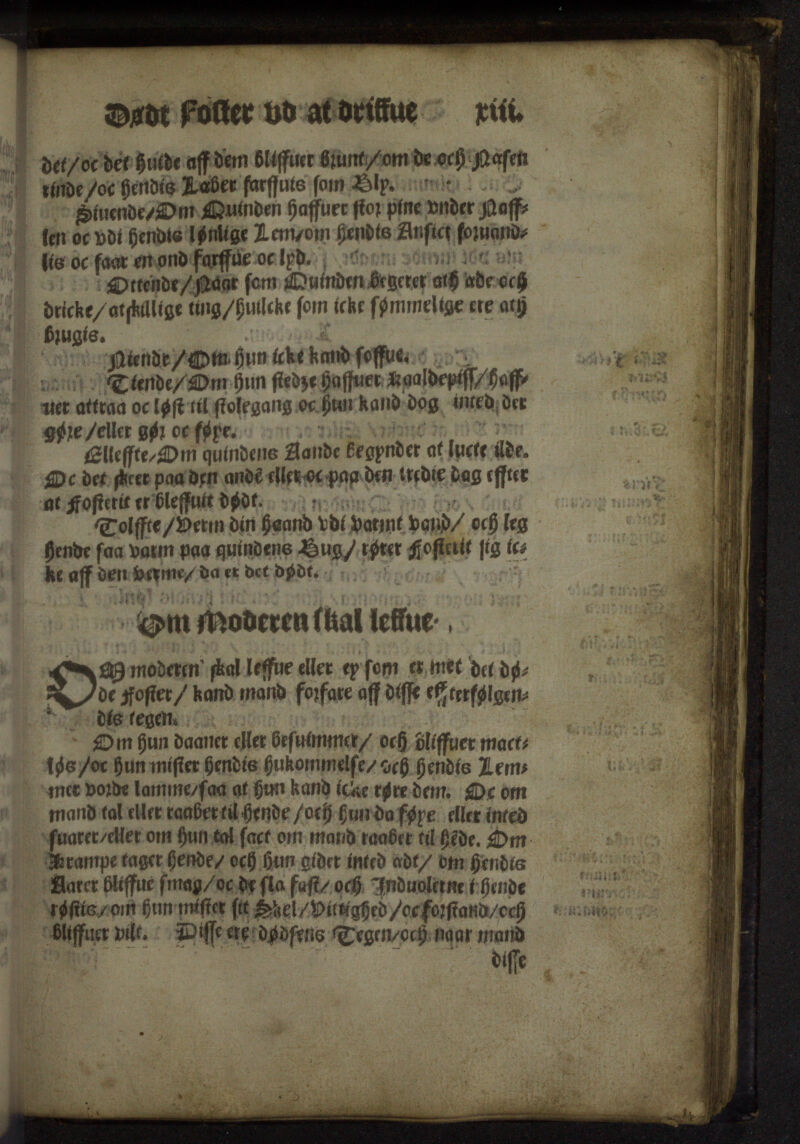 Dødt Foster ud at driffue xiii.
det/oc det huide aff dem bliffuer bjunt/om de och Næsen
tinde/oc hendis Læber farffuis som Blp.
Siuende/Om Quinden haffuer stoz pine vnder Naff⸗
len oc vdi hendis lønlige Lem/om hendis Ansict fozuand⸗
lis oc faar en ond farffue oc lyd.
Ottende/Naar som Quinden begerer ath æde och
dricke/atskillige ting/huilcke som icke sømmelige ere ath
bzugis.
Niende/Om hun icke kand soffue.
Tiende/Om hun stedze haffuer Kaaldepiss/haff⸗
uer attraa oc løst til stolegang oc hun kand dog inted der
gøze/eller gøz oc søpe.
Elleffte/Om quindens Aande begynder at lucte ilde.
Oc det skeer paa den andë eller oc paa den tredie dag effter
at Fosterit er bleffuit dødt.
Tolffte/Verm din haand vdi varmt vand/ och leg
hende saa varm paa quindens Bug/ rører Fosterit sig ic⸗
ke aff den verme/ da er det dødt.
Om Moderen skal leffue.
OM moderen skal leffue eller ey som er met det dø⸗
de Foster/ kand mand fozfare aff disse effterfølgen⸗
dis tegen.
Om hun daaner eller besuimmer/ och bliffuer mact⸗
løs/oc hun mister hendis hukommelse/ och hendis Lem⸗
mer vozde lamme/saa at hun kand icke røre dem. Oc om
mand tal eller raaber til hende/och hun da søpe eller inted
suarer/eller om hun tal sact om mand raaber til hëde. Om
Krampe tager hende/ och hun gider inted ædt/ om hendis
Aarer bliffue smaa/oc de sla fast/ och Induolerne i hende
røstis/om hun mister sit Skel/Vittighed/oc fozstand/och
bliffuer vild. Disse ere dødsens Tegen/och naar mand
disse